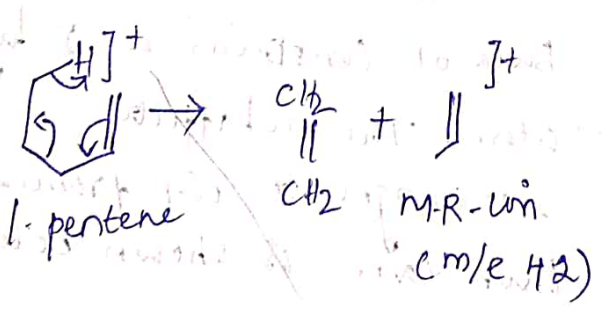 H]+
CH2
||
CH2
+
]+
1-pentene
M.R-ion
(m/e 42)